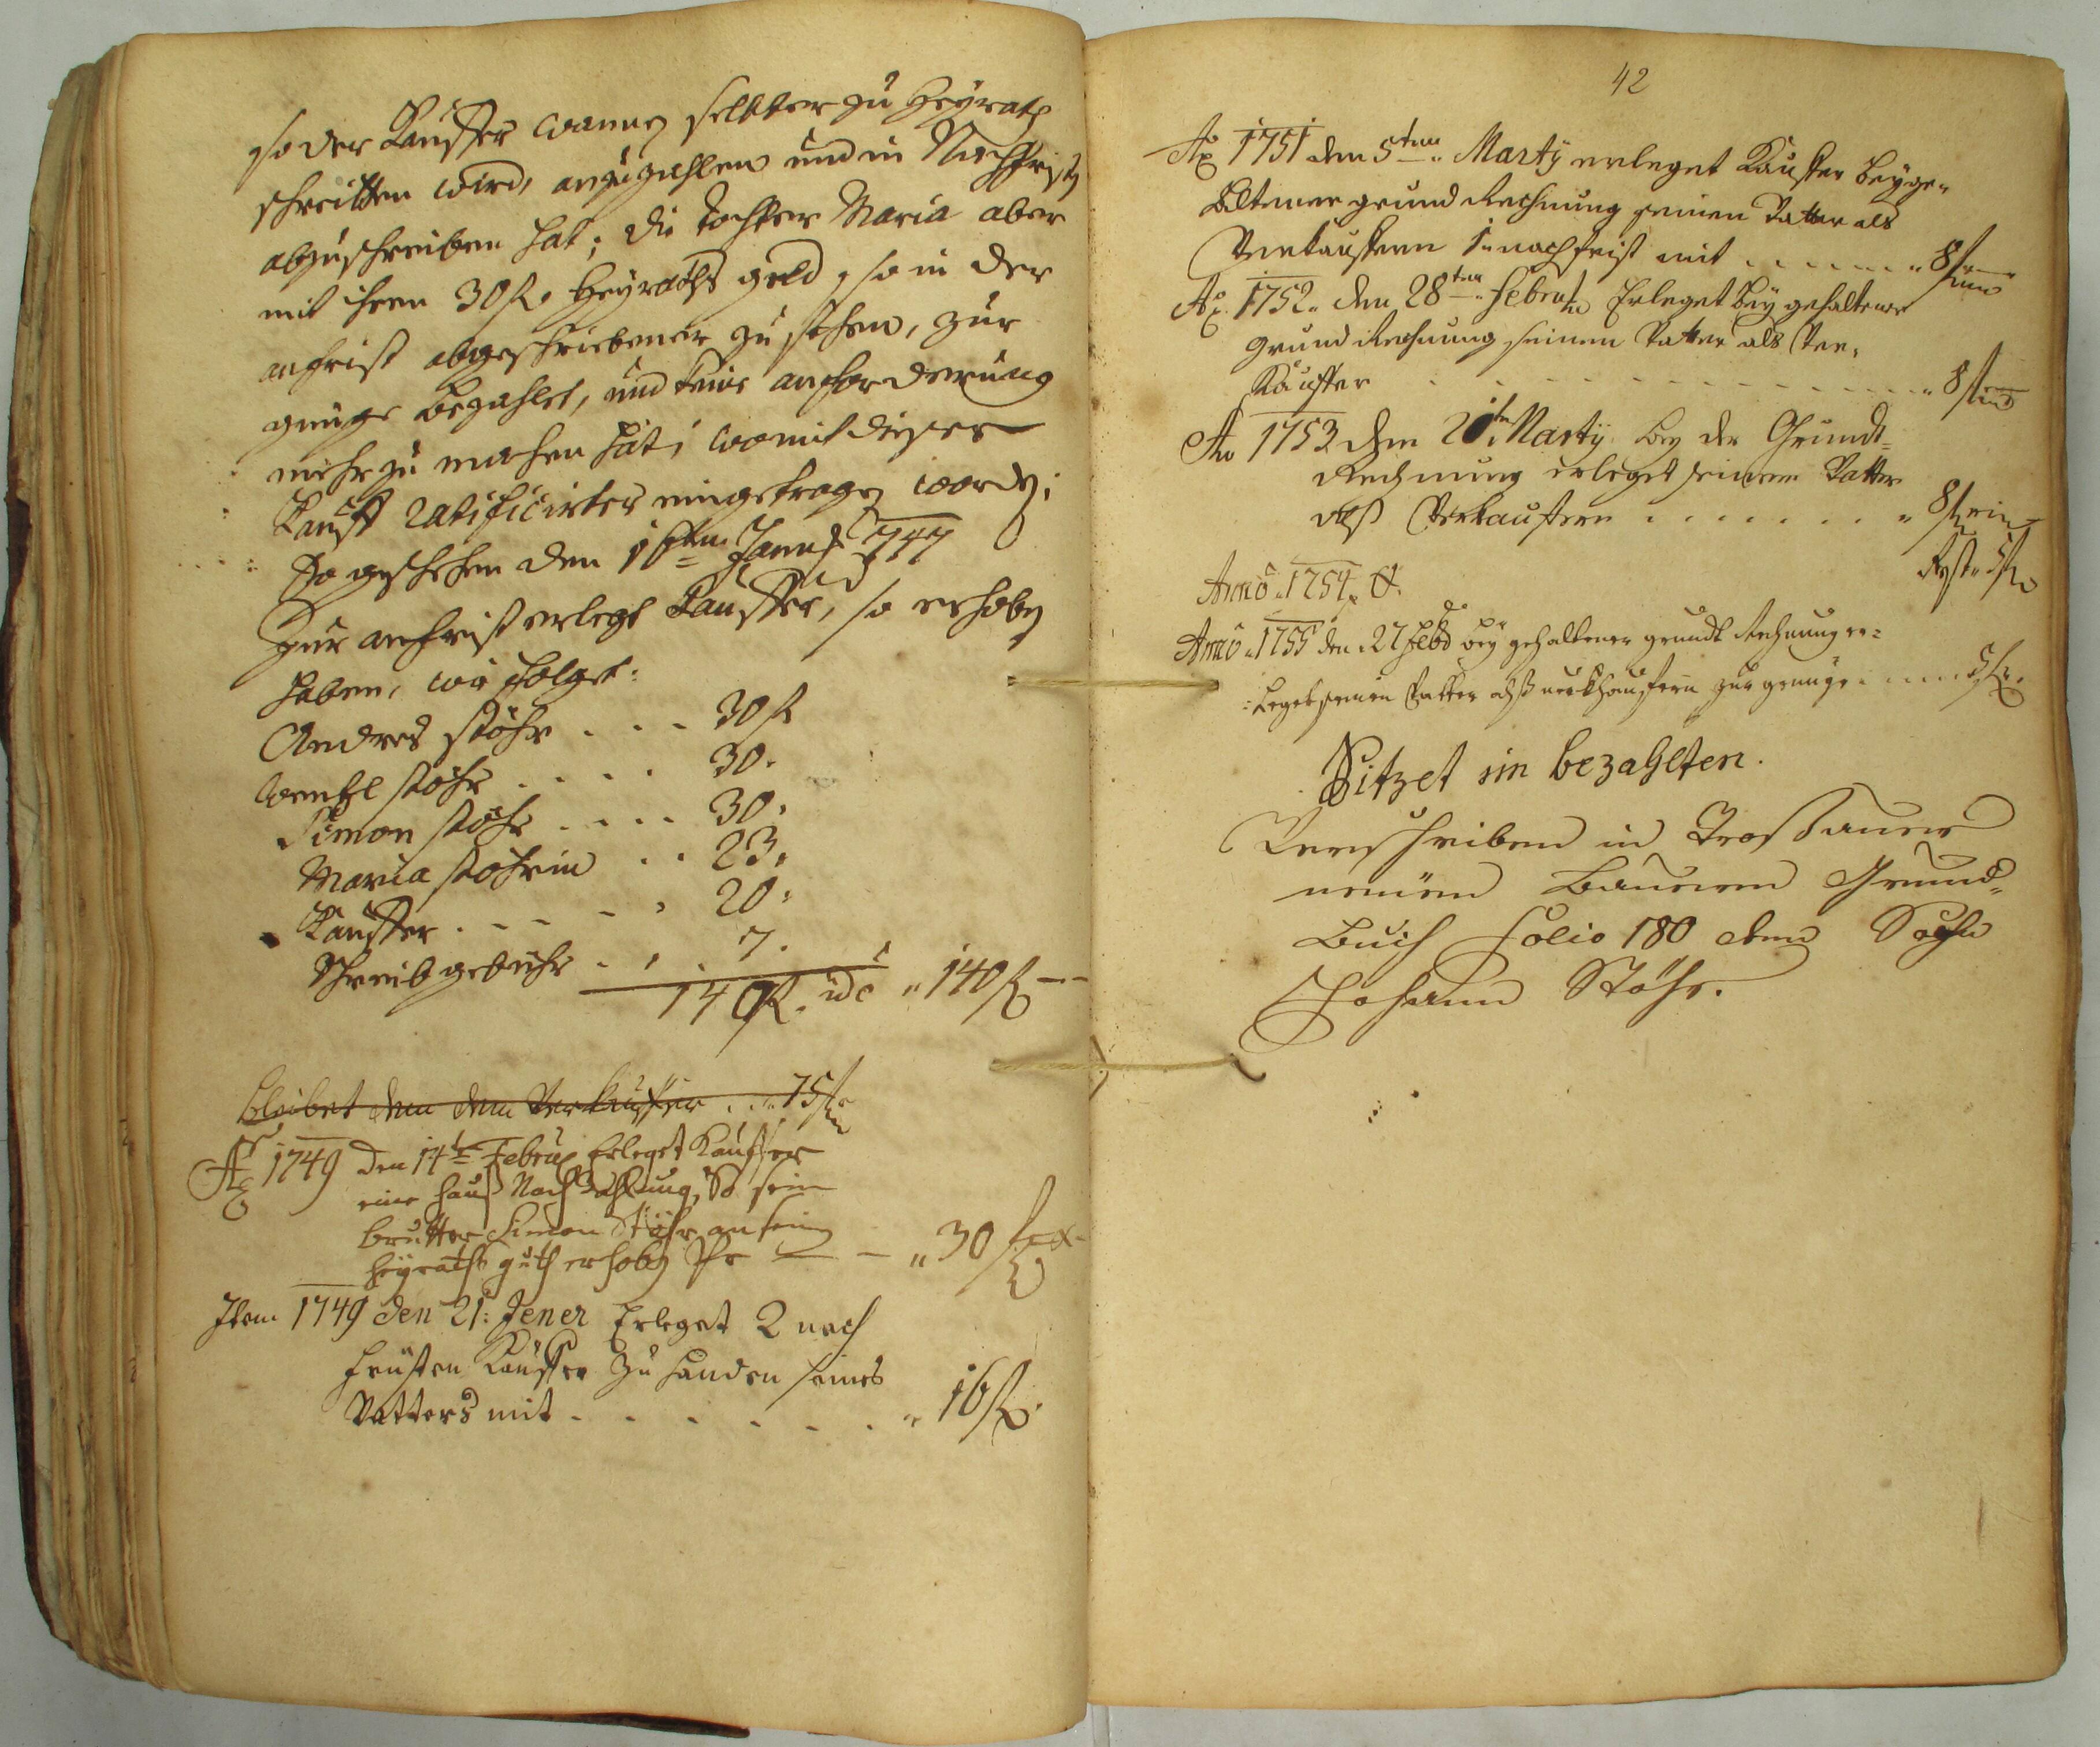 so der Kauffer wanney selbter zu Heyrath
schreitten wird, anzuzahlen und in Nachfristen
abzuschreiben hat; die Tochter Maria aber
mit ihren 30 fl. Heyraths geld, so in der
anfrist abgeschriebener zu sehen, zur
genüge bezahlet, und keine anforderung
mehr zu machen hat; womit dieser
Kauff ratificirter eingetragen worden;
So geschehen den 16ten Januar 1747
Zur anfrist erlegt Kauffer, so erhoben
haben, wie folget:
Andres Stöhr . . . 30 fl
Wentzl Stöhr . . . . 30.
Simon Stöhr . . . . 30.
Maria Stöhrin . . 23.
Kauffer . . . . . 20.
Schreibgebühr . . . 7.
140 fl. idē „ 140 fl
bleibet dem Verkauffer . . . 75 fl
Aō 1749 den 14te Febru Erleget Kauffer
eine Hauß Nach Zahlung, So sein
brutter Simon Stöhr an sein
heyraths guth erhoben Pr „ 30 fl
Item 1749 den 21: Jener Erleget 2 nach
fristen Kauffer zu handen seines
Vatters mit . . . . . . „ 16 fl.
42
Aō 1751 den 5ten Marty erleget Kauffer beyge„
haltener grund Rechnung seinen Vatter als
Verkauffern 1„ nachfrist mit . . . . . . „ 8 fl
Aō 1752„ den 28ten Febru Erleget bey gehaltener
grund Rechnung seinen Vatter als Ver„
Kauffer . . . . . . . . . . „ 8 fl
Aō 1753 den 20ten Marty bey der Grundt=
Rechnung erleget seinem Vatter
alß Verkauffern . . . . . . . „ 8 fl
Rest „ 5 fl
Annō „ 1754
Annō „ 1755 den „ 27 Feb bey gehaltener grundt Rechnung er=
=leget seinen Vatter alß verkhauffern zur genüge . . . . . 5 fl.
Sitzet im bezahlten.
Verschrieben in Trossauer
neuen Bauern Grund„
Buch Folio 180 dem Sohn
Johann Stöhr.